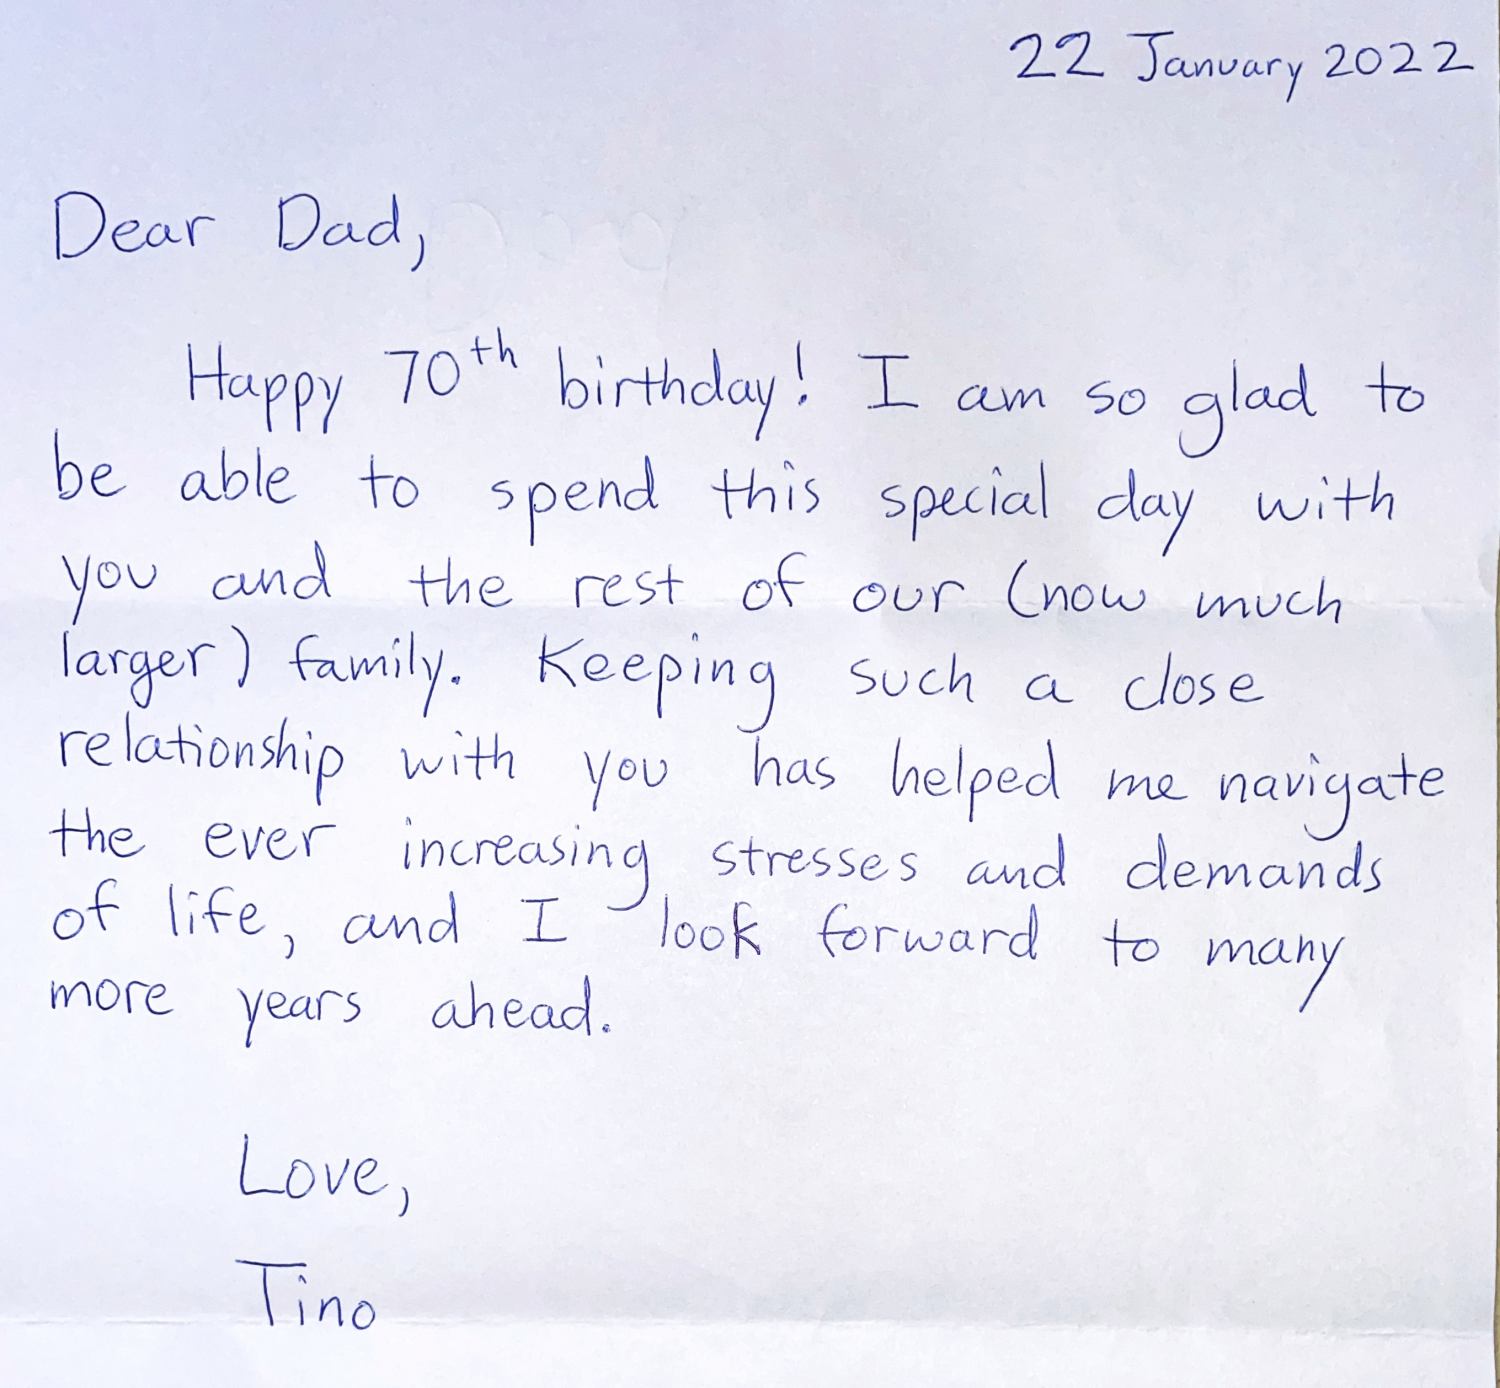 22 January 2022
Dear Dad,
Happy 70th birthday! I am so glad to
be able to spend this special day with
you and the rest of our (now much
larger) family. Keeping such a close
relationship with you has helped me navigate
the ever increasing stresses and demands
of life, and I look forward to many
more years ahead.
Love,
Tino